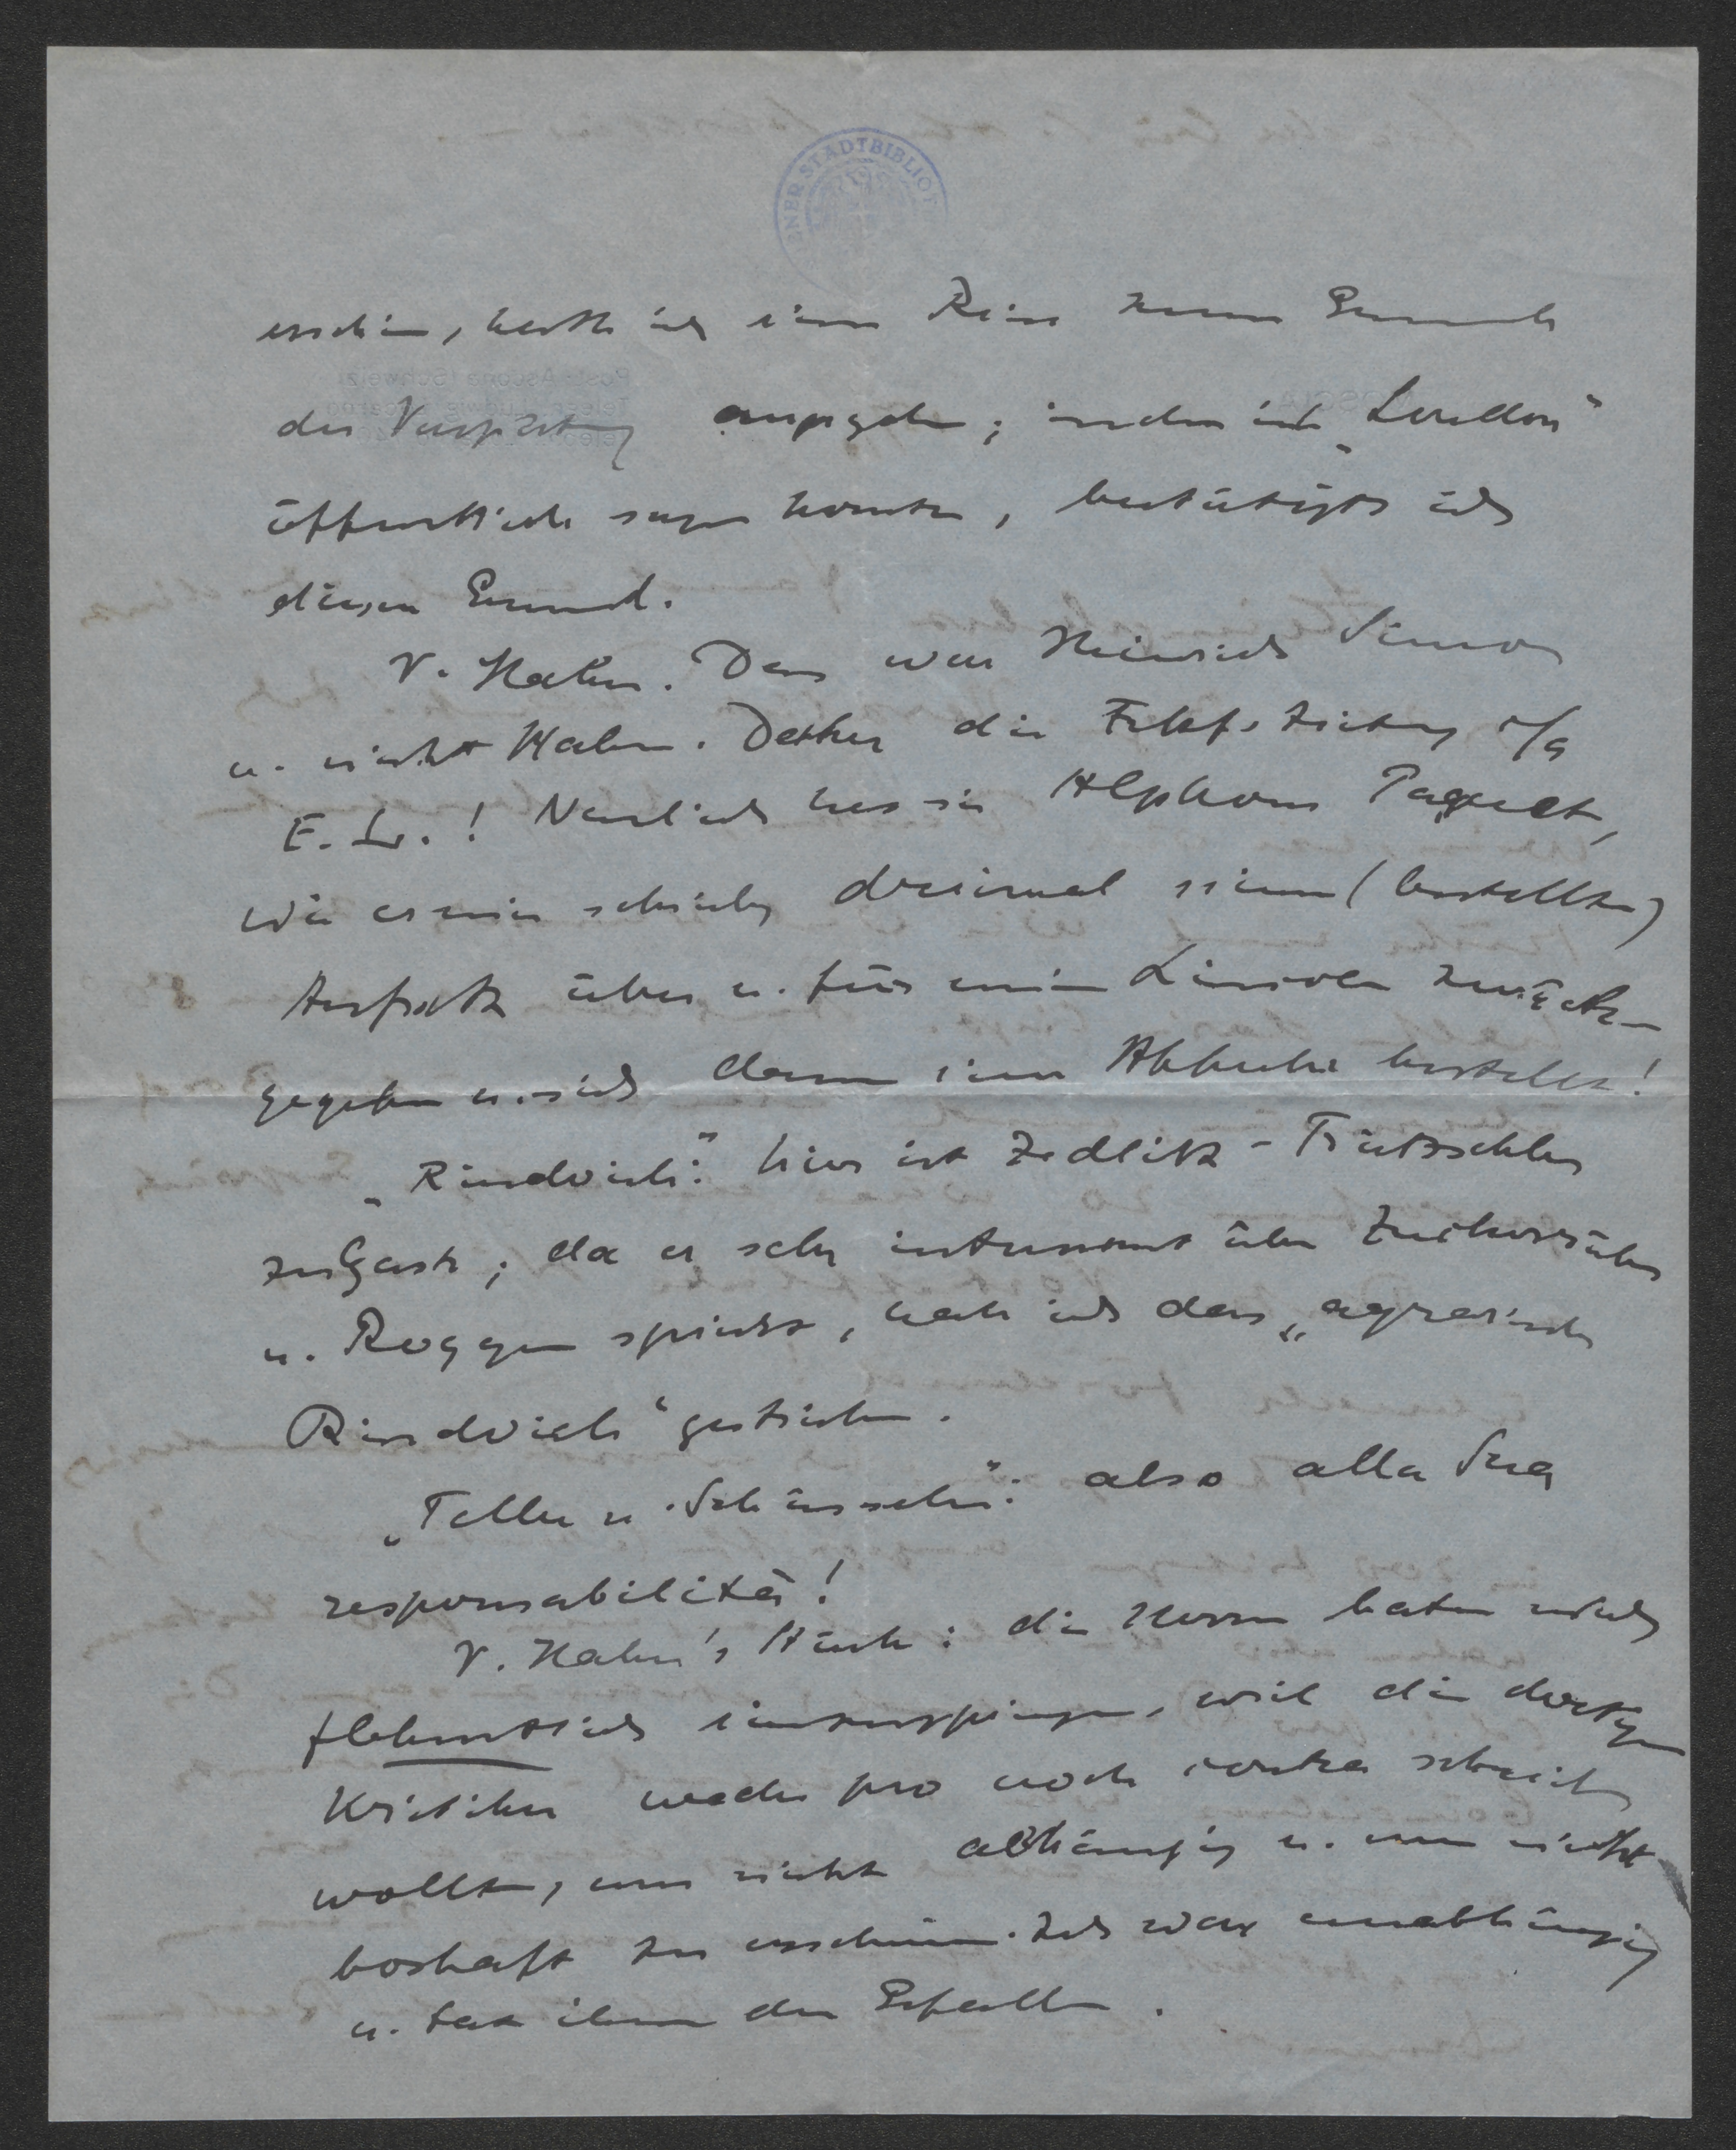 erschien, hatte ich eine Reise zum Grunde
der Verspätung angegeben; indem ich „London“
öffentlich sagen konnte, bestätigte ich
diesen Grund.
V. Hahn. Das war Heinrich Simon
u. nicht Hahn. Daher die Frkf. Zeitung
E. L.! Neulich hat sie Alphons Paquet,
wie er mir schrieb, dreimal seinen (bestellten)
Aufsatz über u. für mein Lincoln zurück-
gegeben u. sich dann eine Attacke bestellt!
„Rindvieh“: hier ist Zedlitz-Trützschler
zu Gast; da er sehr interessant über Zuckerrüben
u. Roggen spricht, habe ich das „agrarische
Rindvieh“ gestrichen.
„Teller u. Schüsseln“: also alla Sua
responsabilità!
V. Hahn's Stück: die Herren baten mich
flehentlich einzuspringen, weil die dortigen
Kritiker weder pro noch contra schreiben
wollten, um nicht abhängig u. um nicht
boshaft zu erscheinen. Ich war unabhängig
u. tat ihnen den Gefallen.